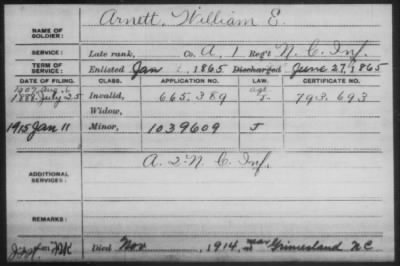 NAME OF SOLDIER: Arnett, William E.
SERVICE: Late rank, Co. A, 1 Reg't N. C. Inf.
TERM OF SERVICE: Enlisted Jan , 1865 Discharged June 27, 1865
DATE OF FILING. CLASS. APPLICATION NO. LAW. CERTIFICATE NO.
1907 Aug. 6
1888 July 25 Invalid, 665.389 793.693
Widow,
1915 Jan 11 Minor, 1039609 J
ADDITIONAL SERVICES: A. 2" N C Inf.
REMARKS:
Died Nov , 1914, near Grimesland N C